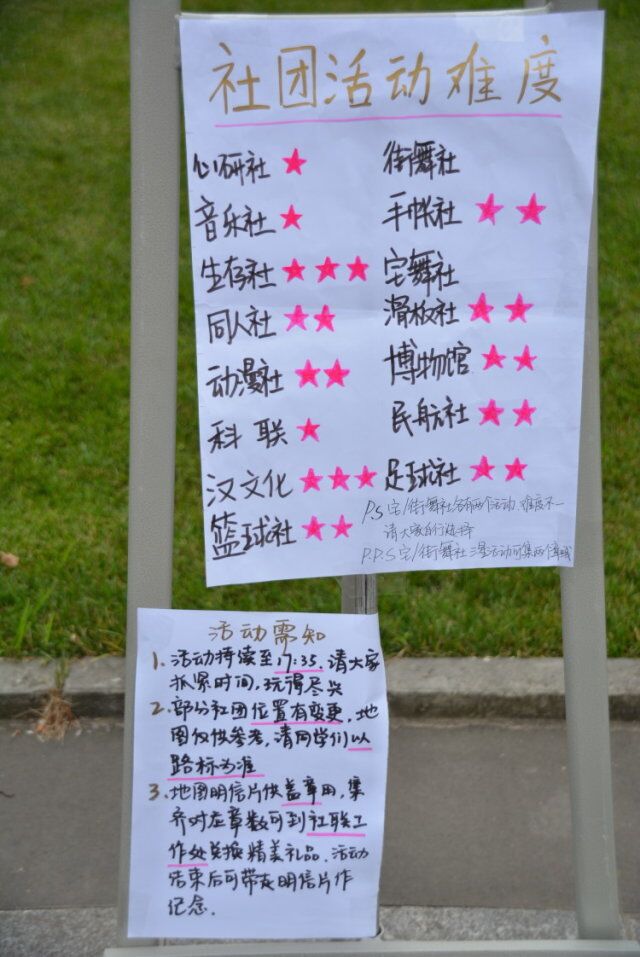 社团活动难度
心研社 ★
音乐社 ★
生存社 ★★★
同人社 ★★
动漫社 ★★
科联 ★
汉文化 ★★★
篮球社 ★★
街舞社
手帐社 ★★
宅舞社
滑板社 ★★
博物馆 ★★
民航社 ★★
足球社 ★★
PS 宅/街舞社各有两个活动、难度不一
请大家自行选择
P.P.S 宅/街舞社 活动可集两个章
活动需知
1. 活动持续至17:35, 请大家
抓紧时间, 玩得尽兴
2. 部分社团位置有变更, 地
图仅供参考, 请同学们以
路标为准
3. 地图明信片供盖章用, 集
齐对应章数可到社联工
作处兑换精美礼品, 活动
结束后可带走明信片作
纪念.